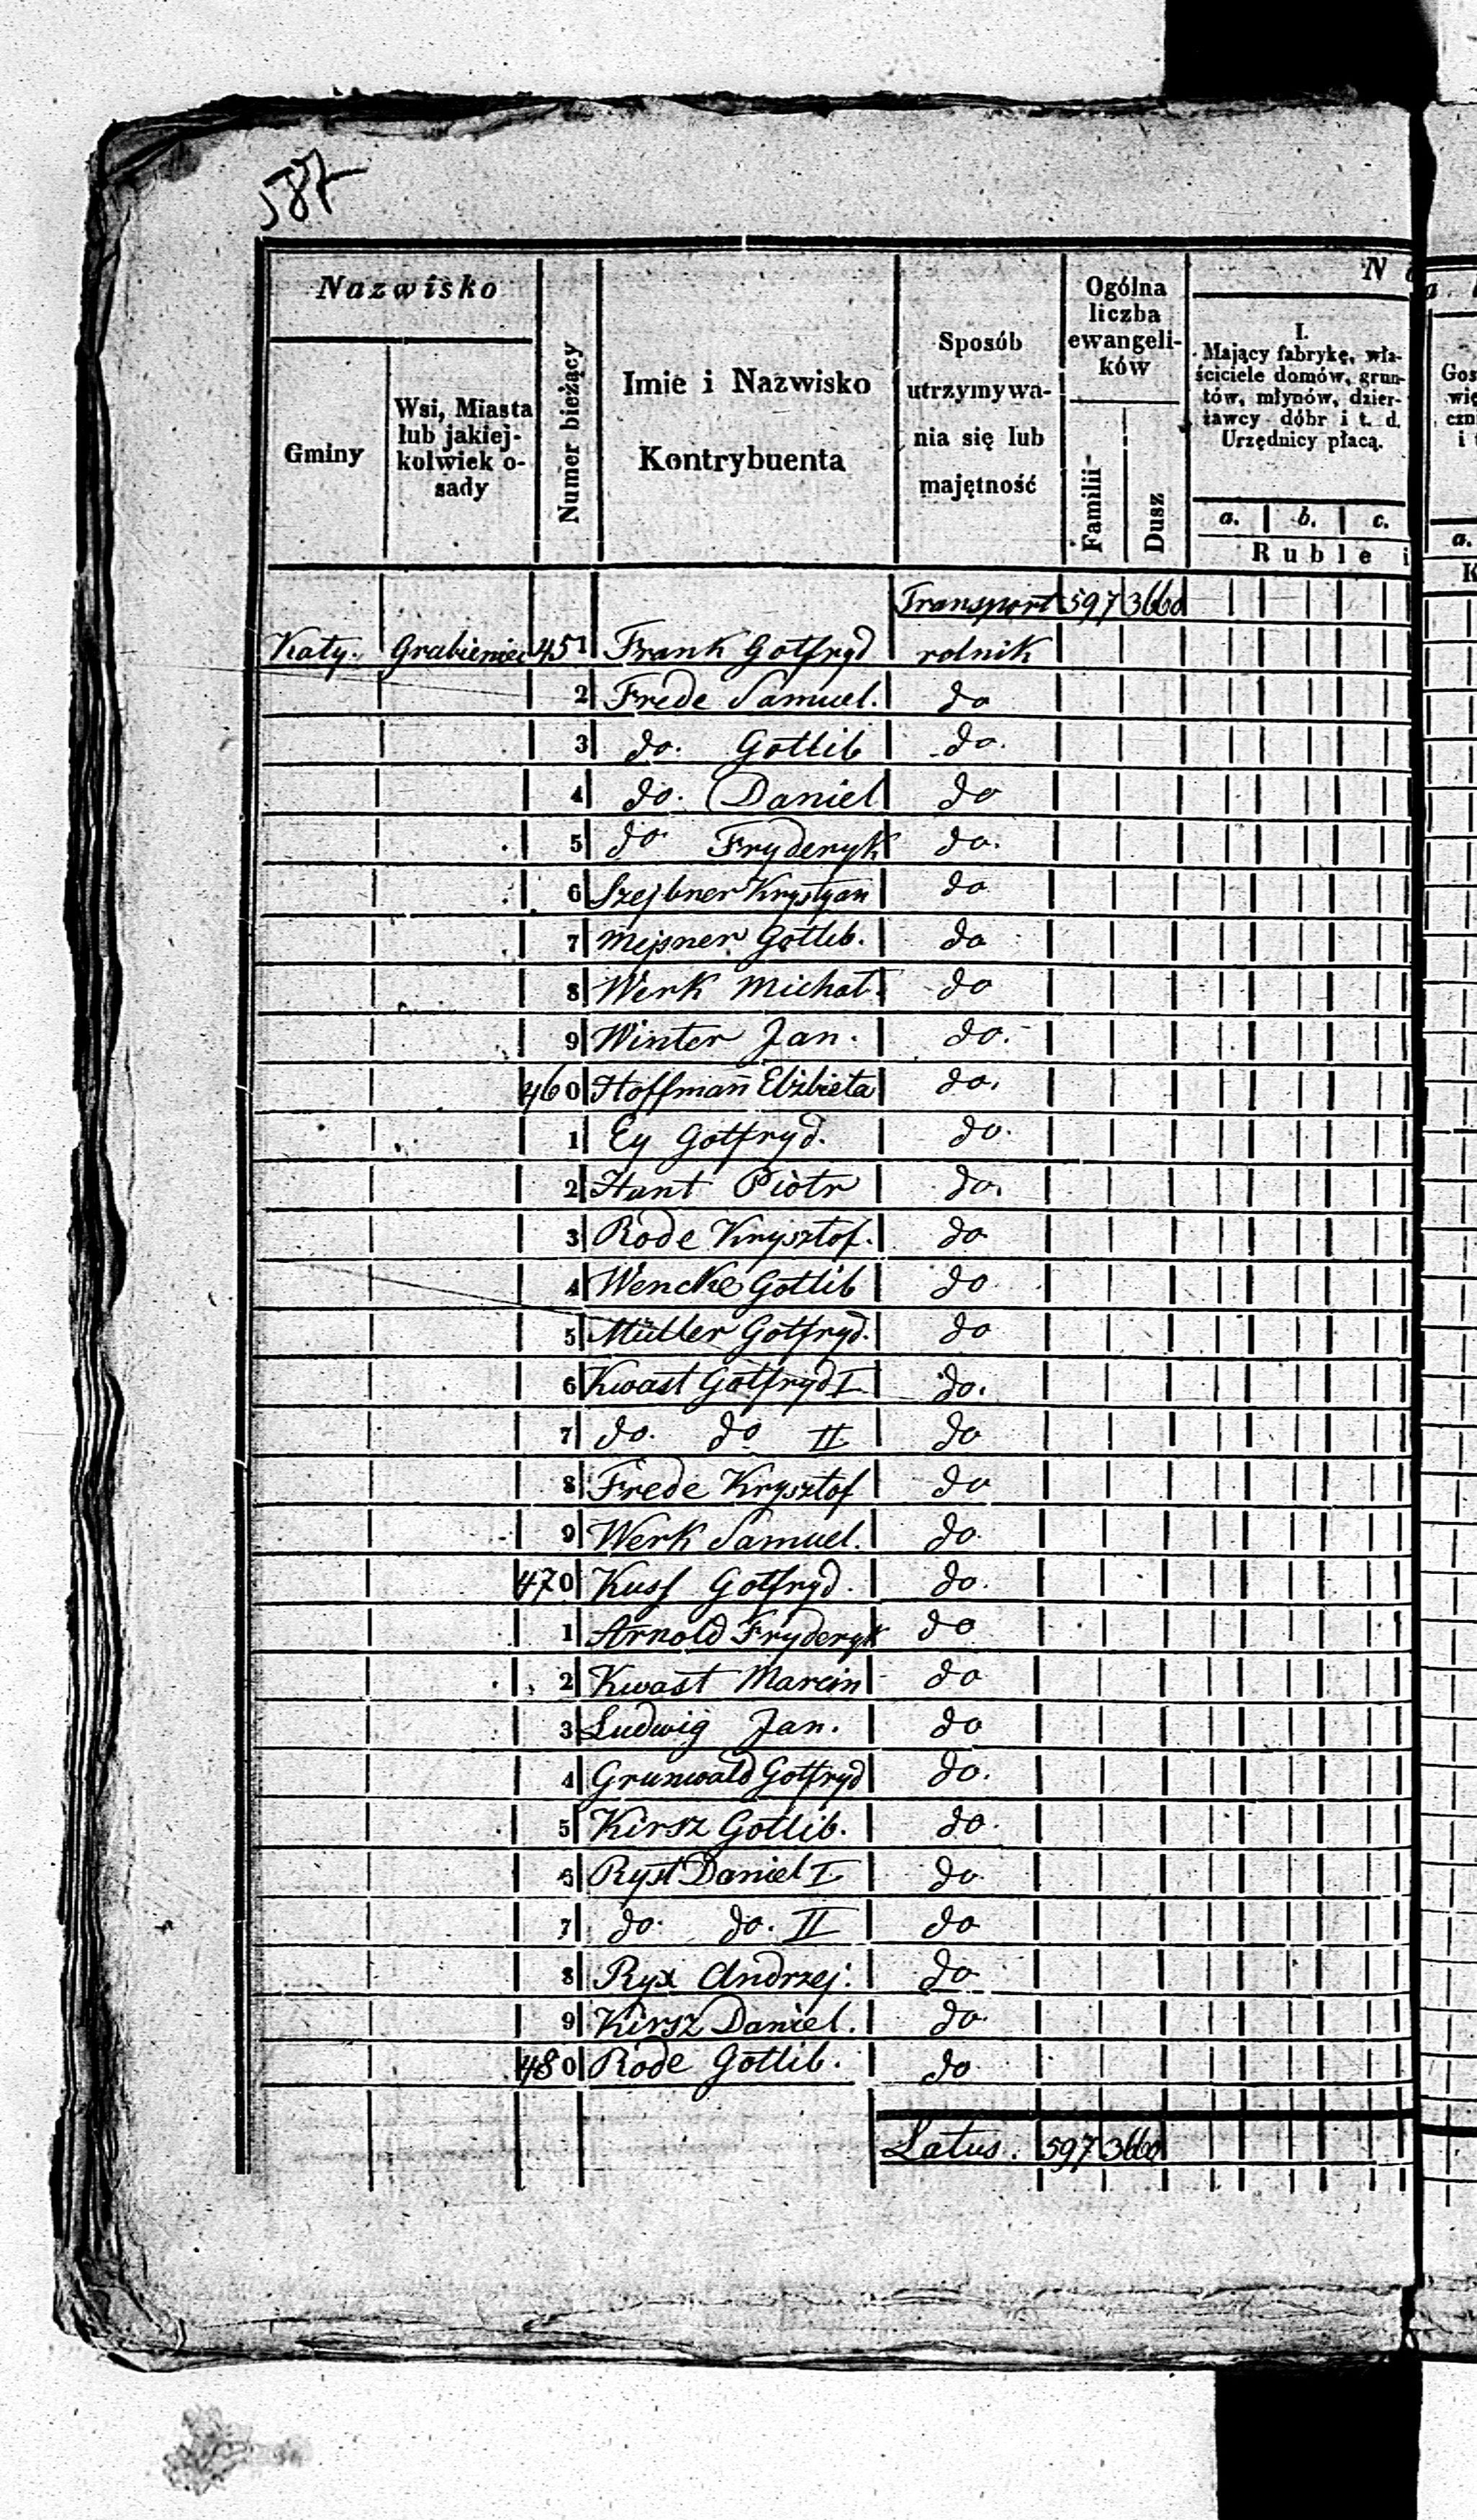 587
Nazwisko
Gminy
Wsi, Miasta
lub jakiej-
kolwiek o-
sady
Numer bieżący
Imie i Nazwisko
Kontrybuenta
Sposób
utrzymywa-
nia się lub
majętność
Ogólna
liczba
ewangeli-
ków
Familii
Dusz
I.
Mający fabrykę, wła-
ściciele domów, grun-
tów, młynów, dzier-
żawcy dóbr i t. d.
Urzędnicy płacą.
a. b. c.
Ruble i
Transport 597 3660
Katy. Grabieniec 451 Frank Gotfryd rolnik
2 Frede Samuel. do
3 do. Gotlib do.
4 do. Daniel do
5 do Fryderyk do.
6 Szejbner Krystyan do
7 Mejsner Gotlib. do
8 Werk Michał. do
9 Winter Jan. do.
460 Hoffmañ Elżbieta do.
1 Ey Gotfryd. do.
2 Hant Piotr do.
3 Rode Krysztof. do
4 Wencke Gotlib do
5 Müller Gotfryd. do
6 Kwast Gotfryd I do.
7 do. do II do
8 Frede Krysztof do
9 Werk Samuel. do
470 Kuss Gotfryd. do.
1 Arnold Fryderyk do
2 Kwast Marcin do
3 Ludwig Jan. do
4 Grunwald Gotfryd do.
5 Kirsz Gotlib. do.
6 Ryst Daniel I do
7 do. do. II do
8 Ryx Andrzej. do
9 Kirsz Daniel. do
480 Rode Gotlib. do
Latus. 597 3660